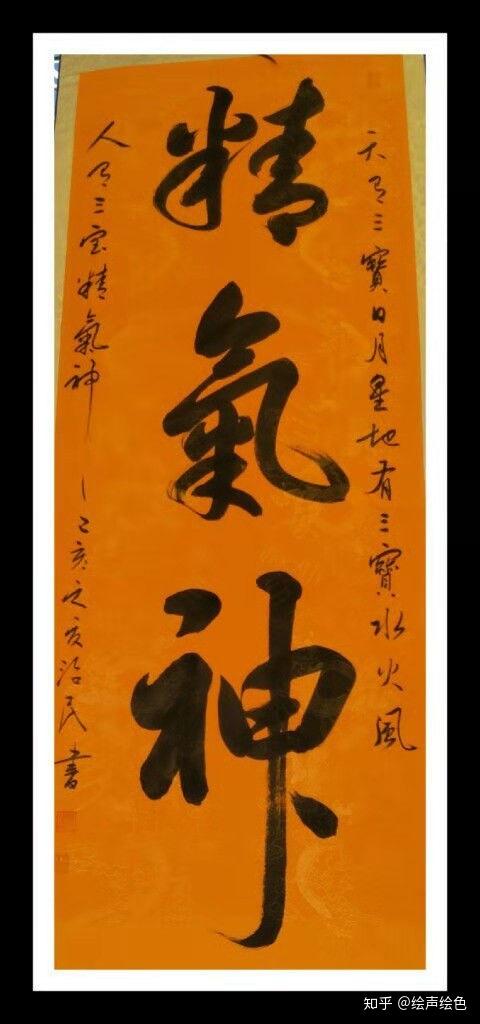 天有三寶日月星地有三寶水火風
精氣神
人有三宝精氣神
亥之夏治民書
知乎 @绘声绘色